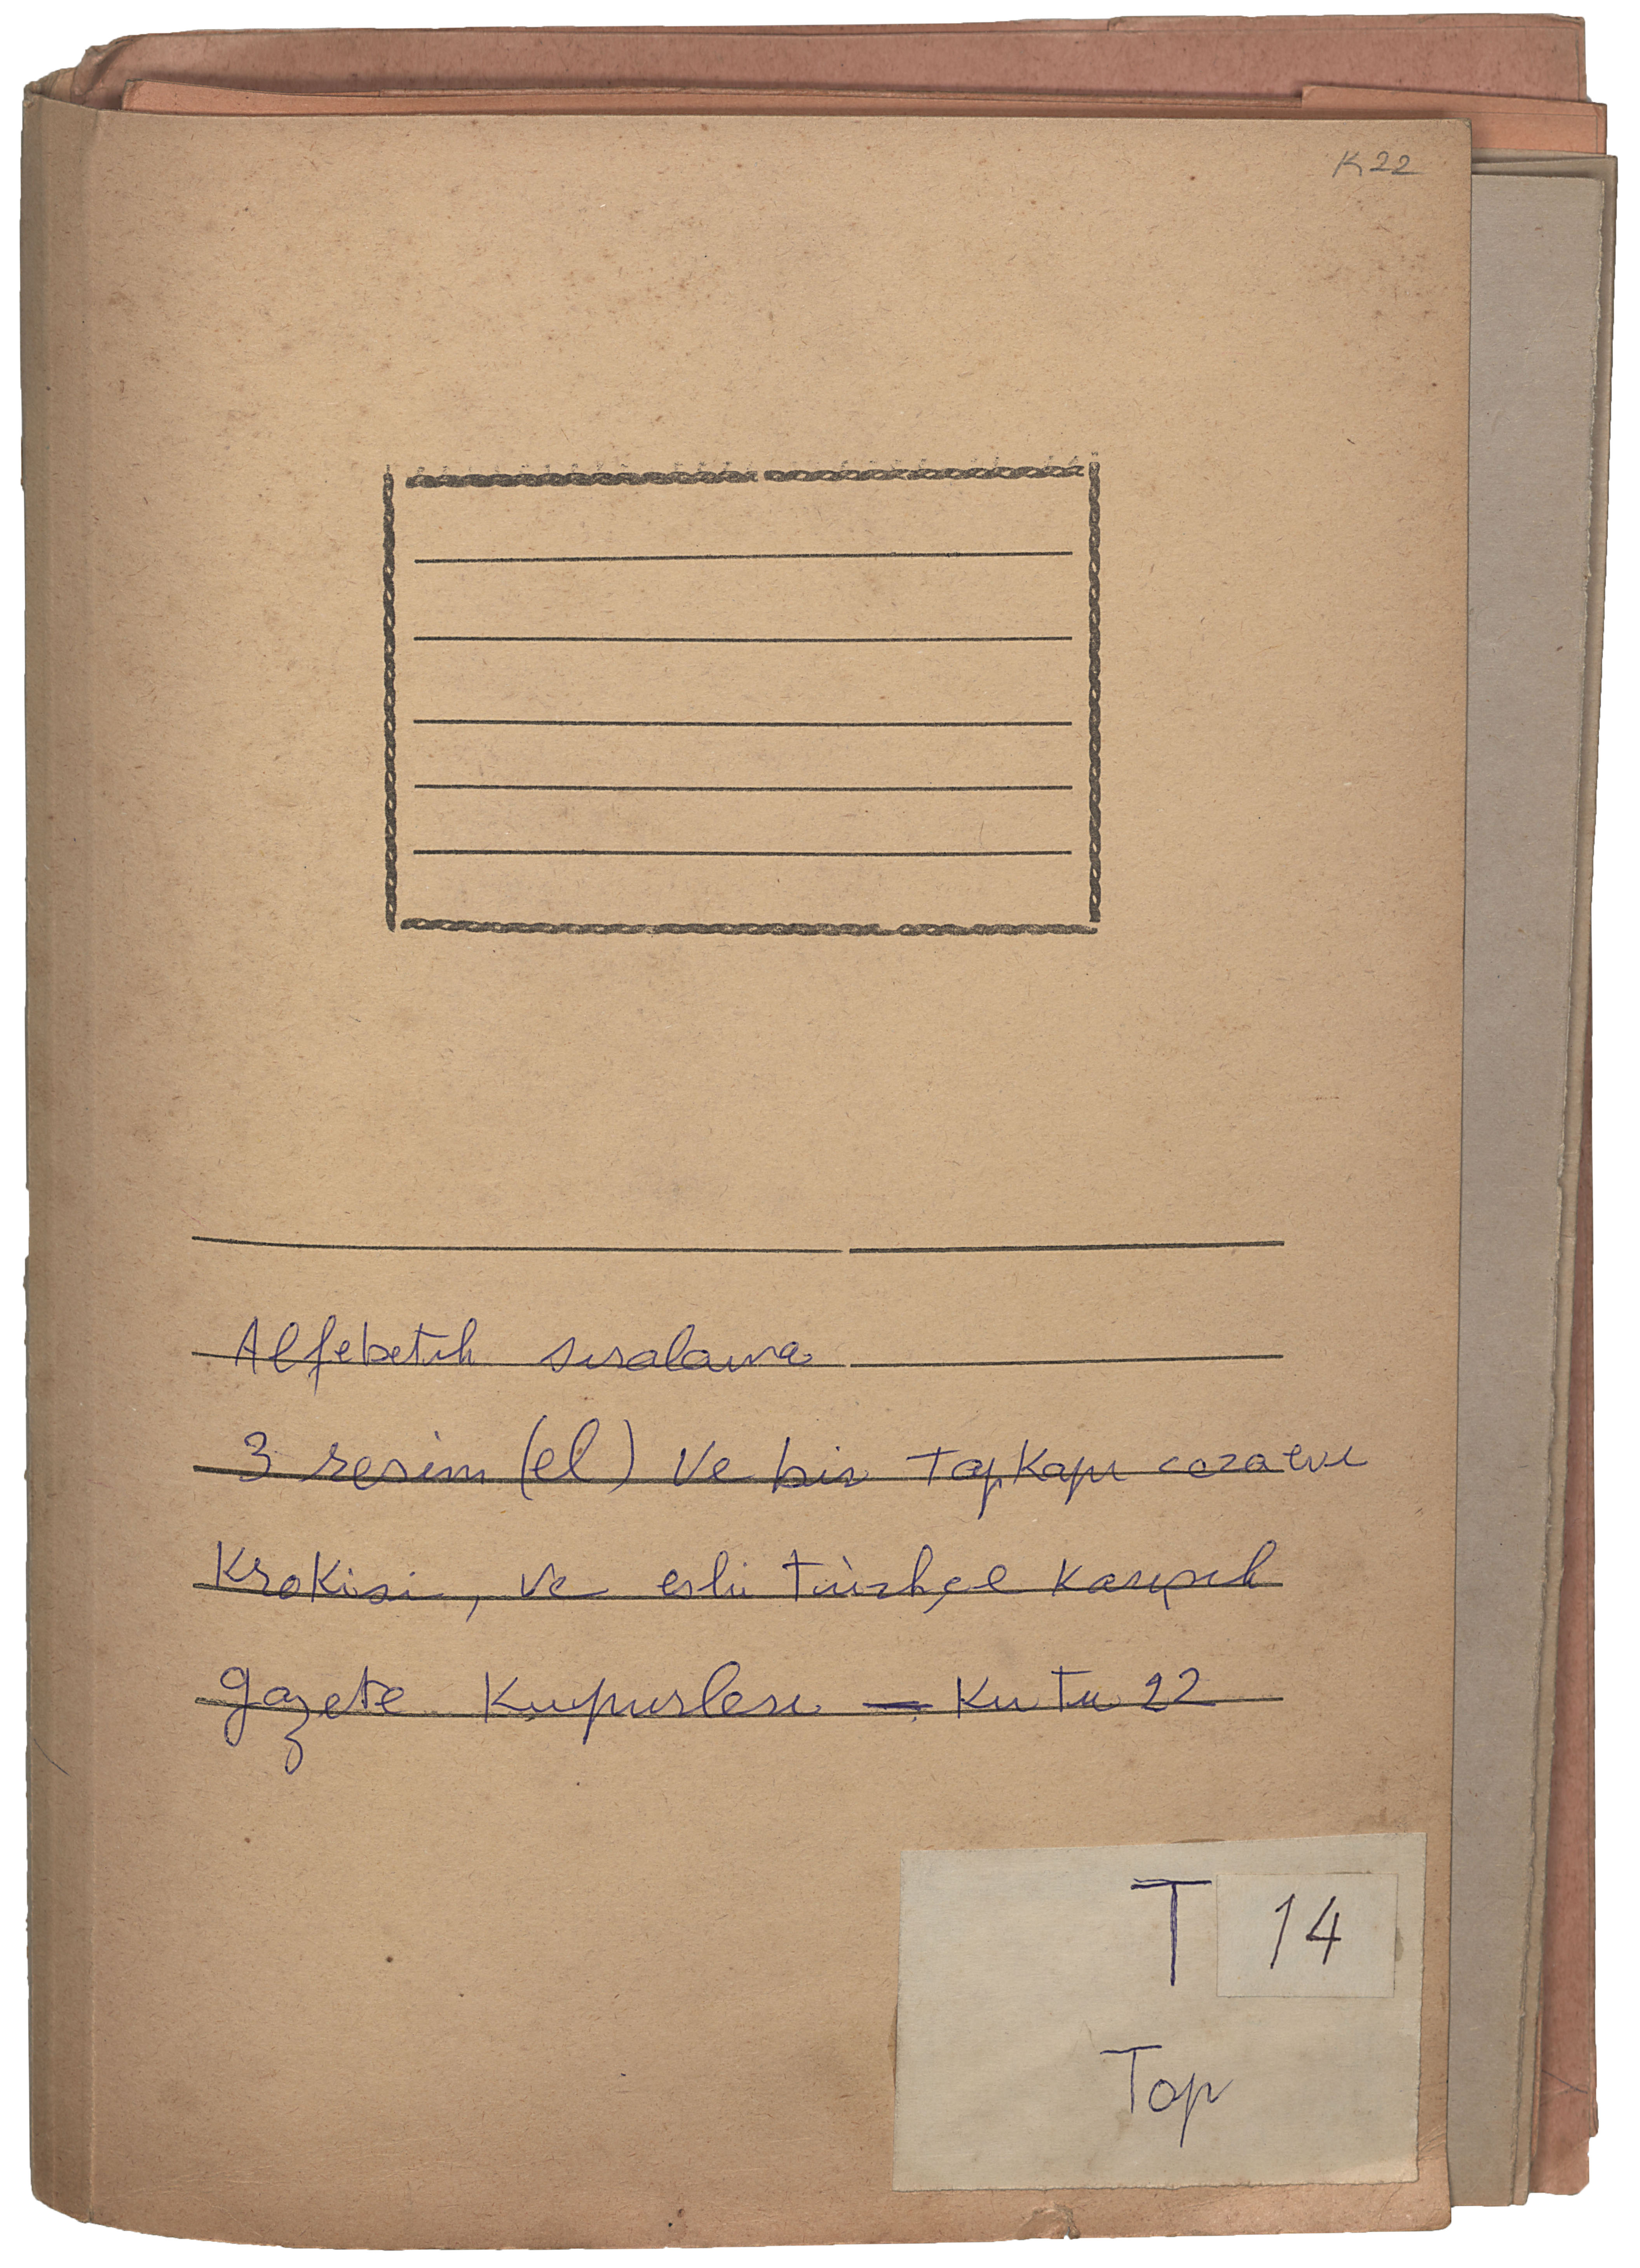 K22
Alfebetik sıralama
3 resim (el) ve bir Topkapı cezaevi
Krokisi, ve eski türkçe karışık
gazete Kupurleri — Kutu 22
T 14
Top